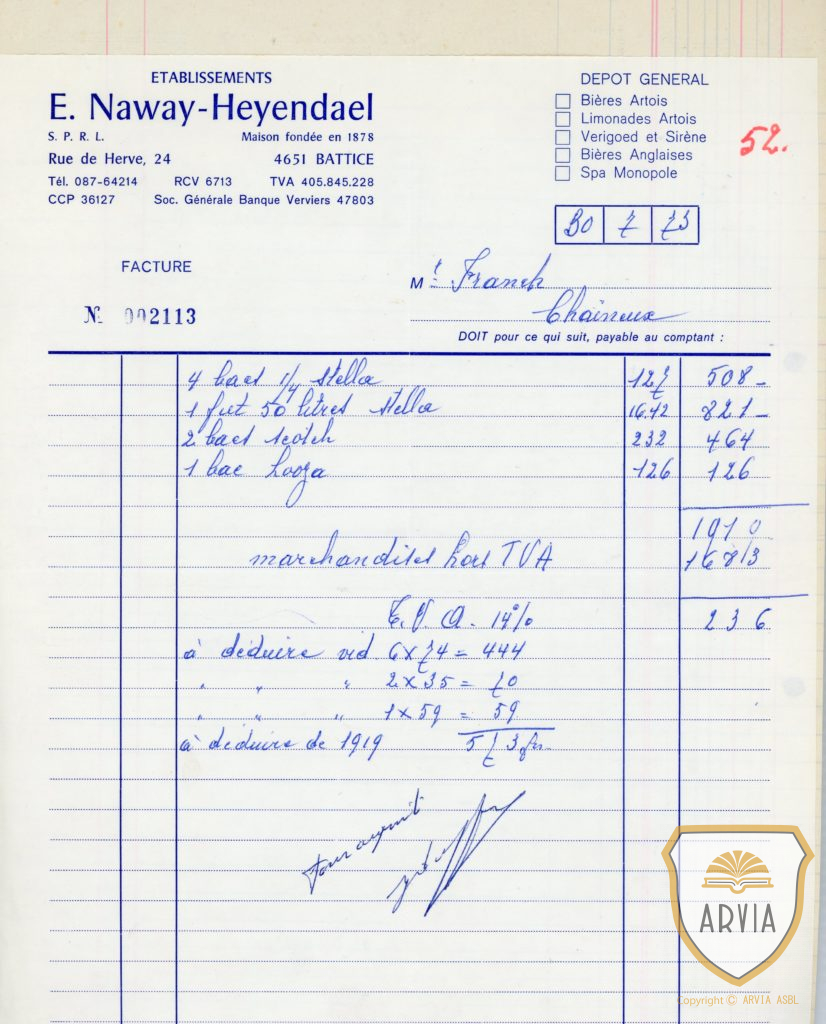 ETABLISSEMENTS
E. Naway-Heyendael
S. P. R. L. Maison fondée en 1878
Rue de Herve, 24 4651 BATTICE
Tél. 087-64214 RCV 6713 TVA 405.845.228
CCP 36127 Soc. Générale Banque Verviers 47803
DEPOT GENERAL
Bières Artois
Limonades Artois
Verigoed et Sirène
Bières Anglaises
Spa Monopole
52.
30 7 73
FACTURE
N. 002113
Mr Franck
Chaineux
DOIT pour ce qui suit, payable au comptant :
4 bacs 1/4 Stella 127 508-
1 fut 50 litres Stella 1642 821-
2 bacs scotch 232 464
1 bac Looza 126 126
1919
marchandises hors TVA 1683
T.V.A. 14% 236
à déduire vid 6 x 74 = 444
" " " 2 x 35 = 70
" " " 1 x 59 = 59
à déduire de 1919 573 frs
Pour acquit
ARVIA
Copyright © ARVIA ASBL